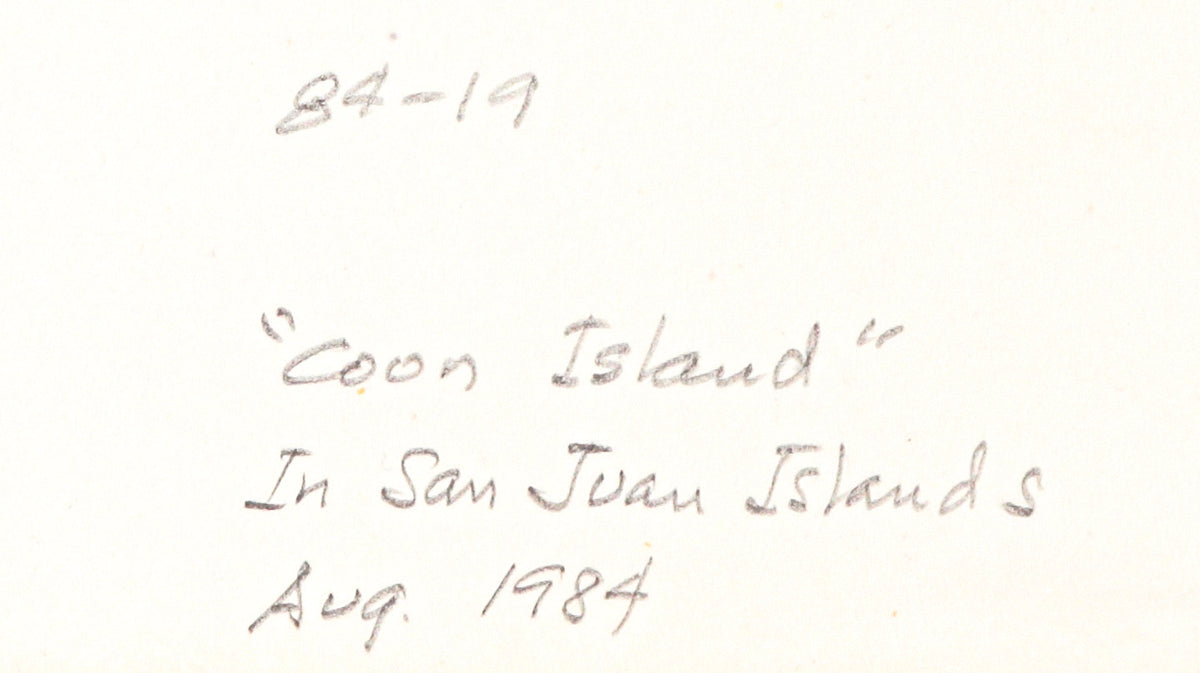 84-19
"Coon Island"
In San Juan Islands
Aug. 1984